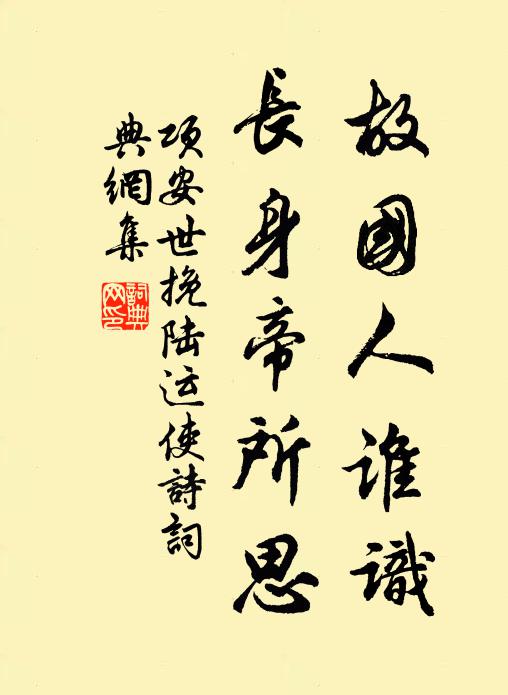 故國人誰識
長身帝所思
項安世挽陆运使詩詞
典網集
詞典網印